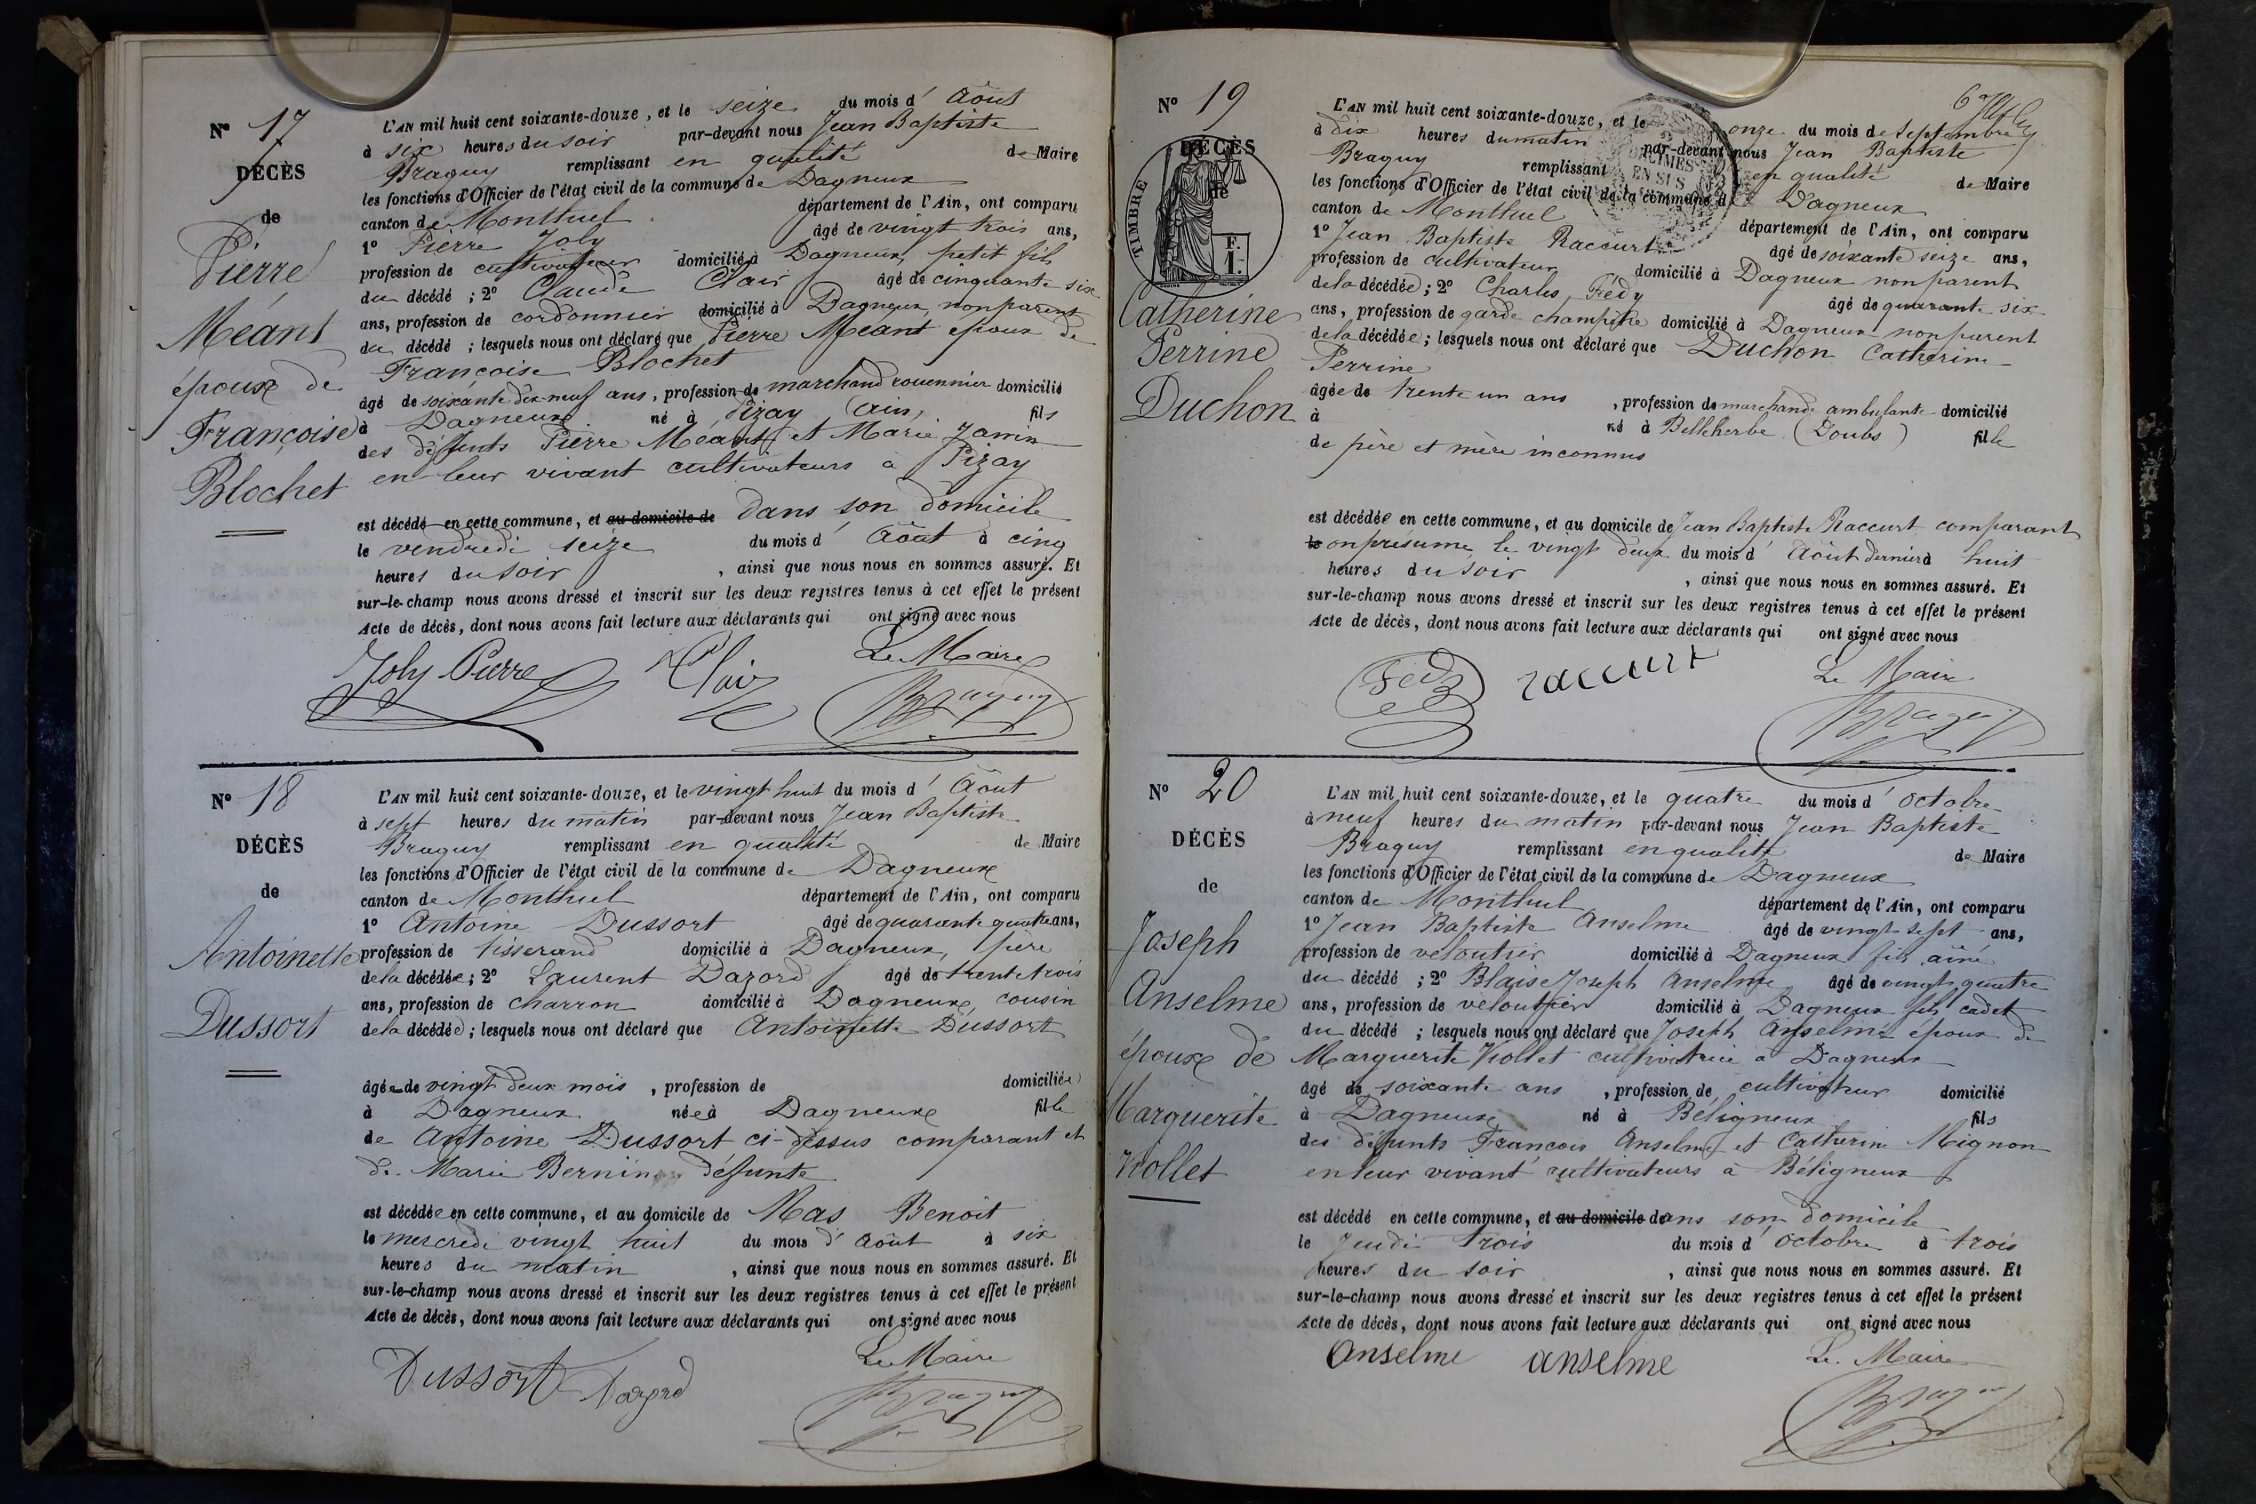 Nº 17
DÉCÈS
de
Pierre
Méant
époux de
Françoise
Blochet
L'AN mil huit cent soixante-douze, et le seize du mois d' Août
à six heures du soir par-devant nous Jean Baptiste
Braguy remplissant en qualité de Maire
les fonctions d'Officier de l'état civil de la commune de Dagneux
canton de Montluel département de l'Ain, ont comparu
1º Pierre Joly âgé de vingt trois ans,
profession de cultivateur domicilié à Dagneux, petit fils
du décédé ; 2º Claude Clair âgé de cinquante six
ans, profession de cordonnier domicilié à Dagneux, non parent
du décédé ; lesquels nous ont déclaré que Pierre Méant époux de
Françoise Blochet
âgé de soixante dix-neuf ans, profession de marchand rouennier domicilié
à Dagneux né à Pizay (Ain) fils
des défunts Pierre Méant et Marie Janin
en leur vivant cultivateurs à Pizay
est décédé en cette commune, et au domicile de dans son domicile
le vendredi seize du mois d' Août à cinq
heures du soir, ainsi que nous nous en sommes assuré. Et
sur-le-champ nous avons dressé et inscrit sur les deux registres tenus à cet effet le présent
Acte de décès, dont nous avons fait lecture aux déclarants qui ont signé avec nous
Le Maire
Joly Pierre Clair Braguy
Nº 18
DÉCÈS
de
Antoinette
Dussort
L'AN mil huit cent soixante-douze, et le vingt huit du mois d' Août
à sept heures du matin par-devant nous Jean Baptiste
Braguy remplissant en qualité de Maire
les fonctions d'Officier de l'état civil de la commune de Dagneux
canton de Montluel département de l'Ain, ont comparu
1º Antoine Dussort âgé de quarante quatre ans,
profession de tisserand domicilié à Dagneux, père
de la décédée ; 2º Laurent Dazord âgé de trente trois
ans, profession de charron domicilié à Dagneux, cousin
de la décédée ; lesquels nous ont déclaré que Antoinette Dussort
âgée de vingt deux mois, profession de domiciliée
à Dagneux née à Dagneux fille
de Antoine Dussort ci-dessus comparant et
de Marie Bernin défunte
est décédée en cette commune, et au domicile de Mas Benoit
le mercredi vingt huit du mois d' Août à six
heures du matin, ainsi que nous nous en sommes assuré. Et
sur-le-champ nous avons dressé et inscrit sur les deux registres tenus à cet effet le présent
Acte de décès, dont nous avons fait lecture aux déclarants qui ont signé avec nous
Le Maire
Dussort Dazord Braguy
Nº 19
DÉCÈS
de
TIMBRE
F.
1.
Catherine
Perrine
Duchon
2
DÉCIMES
EN SUS
L'AN mil huit cent soixante-douze, et le onze du mois de Septembre
à dix heures du matin par-devant nous Jean Baptiste
Braguy remplissant en qualité de Maire
les fonctions d'Officier de l'état civil de la commune de Dagneux
canton de Montluel département de l'Ain, ont comparu
1º Jean Baptiste Raccurt âgé de soixante seize ans,
profession de cultivateur domicilié à Dagneux non parent
de la décédée ; 2º Charles Fédy âgé de quarante six
ans, profession de garde champêtre domicilié à Dagneux non parent
de la décédée ; lesquels nous ont déclaré que Duchon Catherine
Perrine
âgée de trente un ans, profession de marchande ambulante domicilié
à né à Belleherbe (Doubs) fille
de père et mère inconnus
est décédée en cette commune, et au domicile de Jean Baptiste Raccurt comparant
le on présume le vingt deux du mois d' Août dernier à huit
heures du soir, ainsi que nous nous en sommes assuré. Et
sur-le-champ nous avons dressé et inscrit sur les deux registres tenus à cet effet le présent
Acte de décès, dont nous avons fait lecture aux déclarants qui ont signé avec nous
Le Maire
Fédy raccurt Braguy
Nº 20
DÉCÈS
de
Joseph
Anselme
époux de
Marguerite
Viollet
L'AN mil huit cent soixante-douze, et le quatre du mois d' octobre
à neuf heures du matin par-devant nous Jean Baptiste
Braguy remplissant en qualité de Maire
les fonctions d'Officier de l'état civil de la commune de Dagneux
canton de Montluel département de l'Ain, ont comparu
1º Jean Baptiste Anselme âgé de vingt sept ans,
profession de veloutier domicilié à Dagneux fils aîné
du décédé ; 2º Blaise Joseph Anselme âgé de vingt quatre
ans, profession de veloutier domicilié à Dagneux fils cadet
du décédé ; lesquels nous ont déclaré que Joseph Anselme époux de
Marguerite Viollet cultivatrice à Dagneux
âgé de soixante ans, profession de cultivateur domicilié
à Dagneux né à Béligneux fils
des défunts François Anselme et Catherine Mignon
en leur vivant cultivateurs à Béligneux
est décédé en cette commune, et au domicile dans son domicile
le Jeudi trois du mois d' octobre à trois
heures du soir, ainsi que nous nous en sommes assuré. Et
sur-le-champ nous avons dressé et inscrit sur les deux registres tenus à cet effet le présent
Acte de décès, dont nous avons fait lecture aux déclarants qui ont signé avec nous
Le Maire
Anselme anselme Braguy